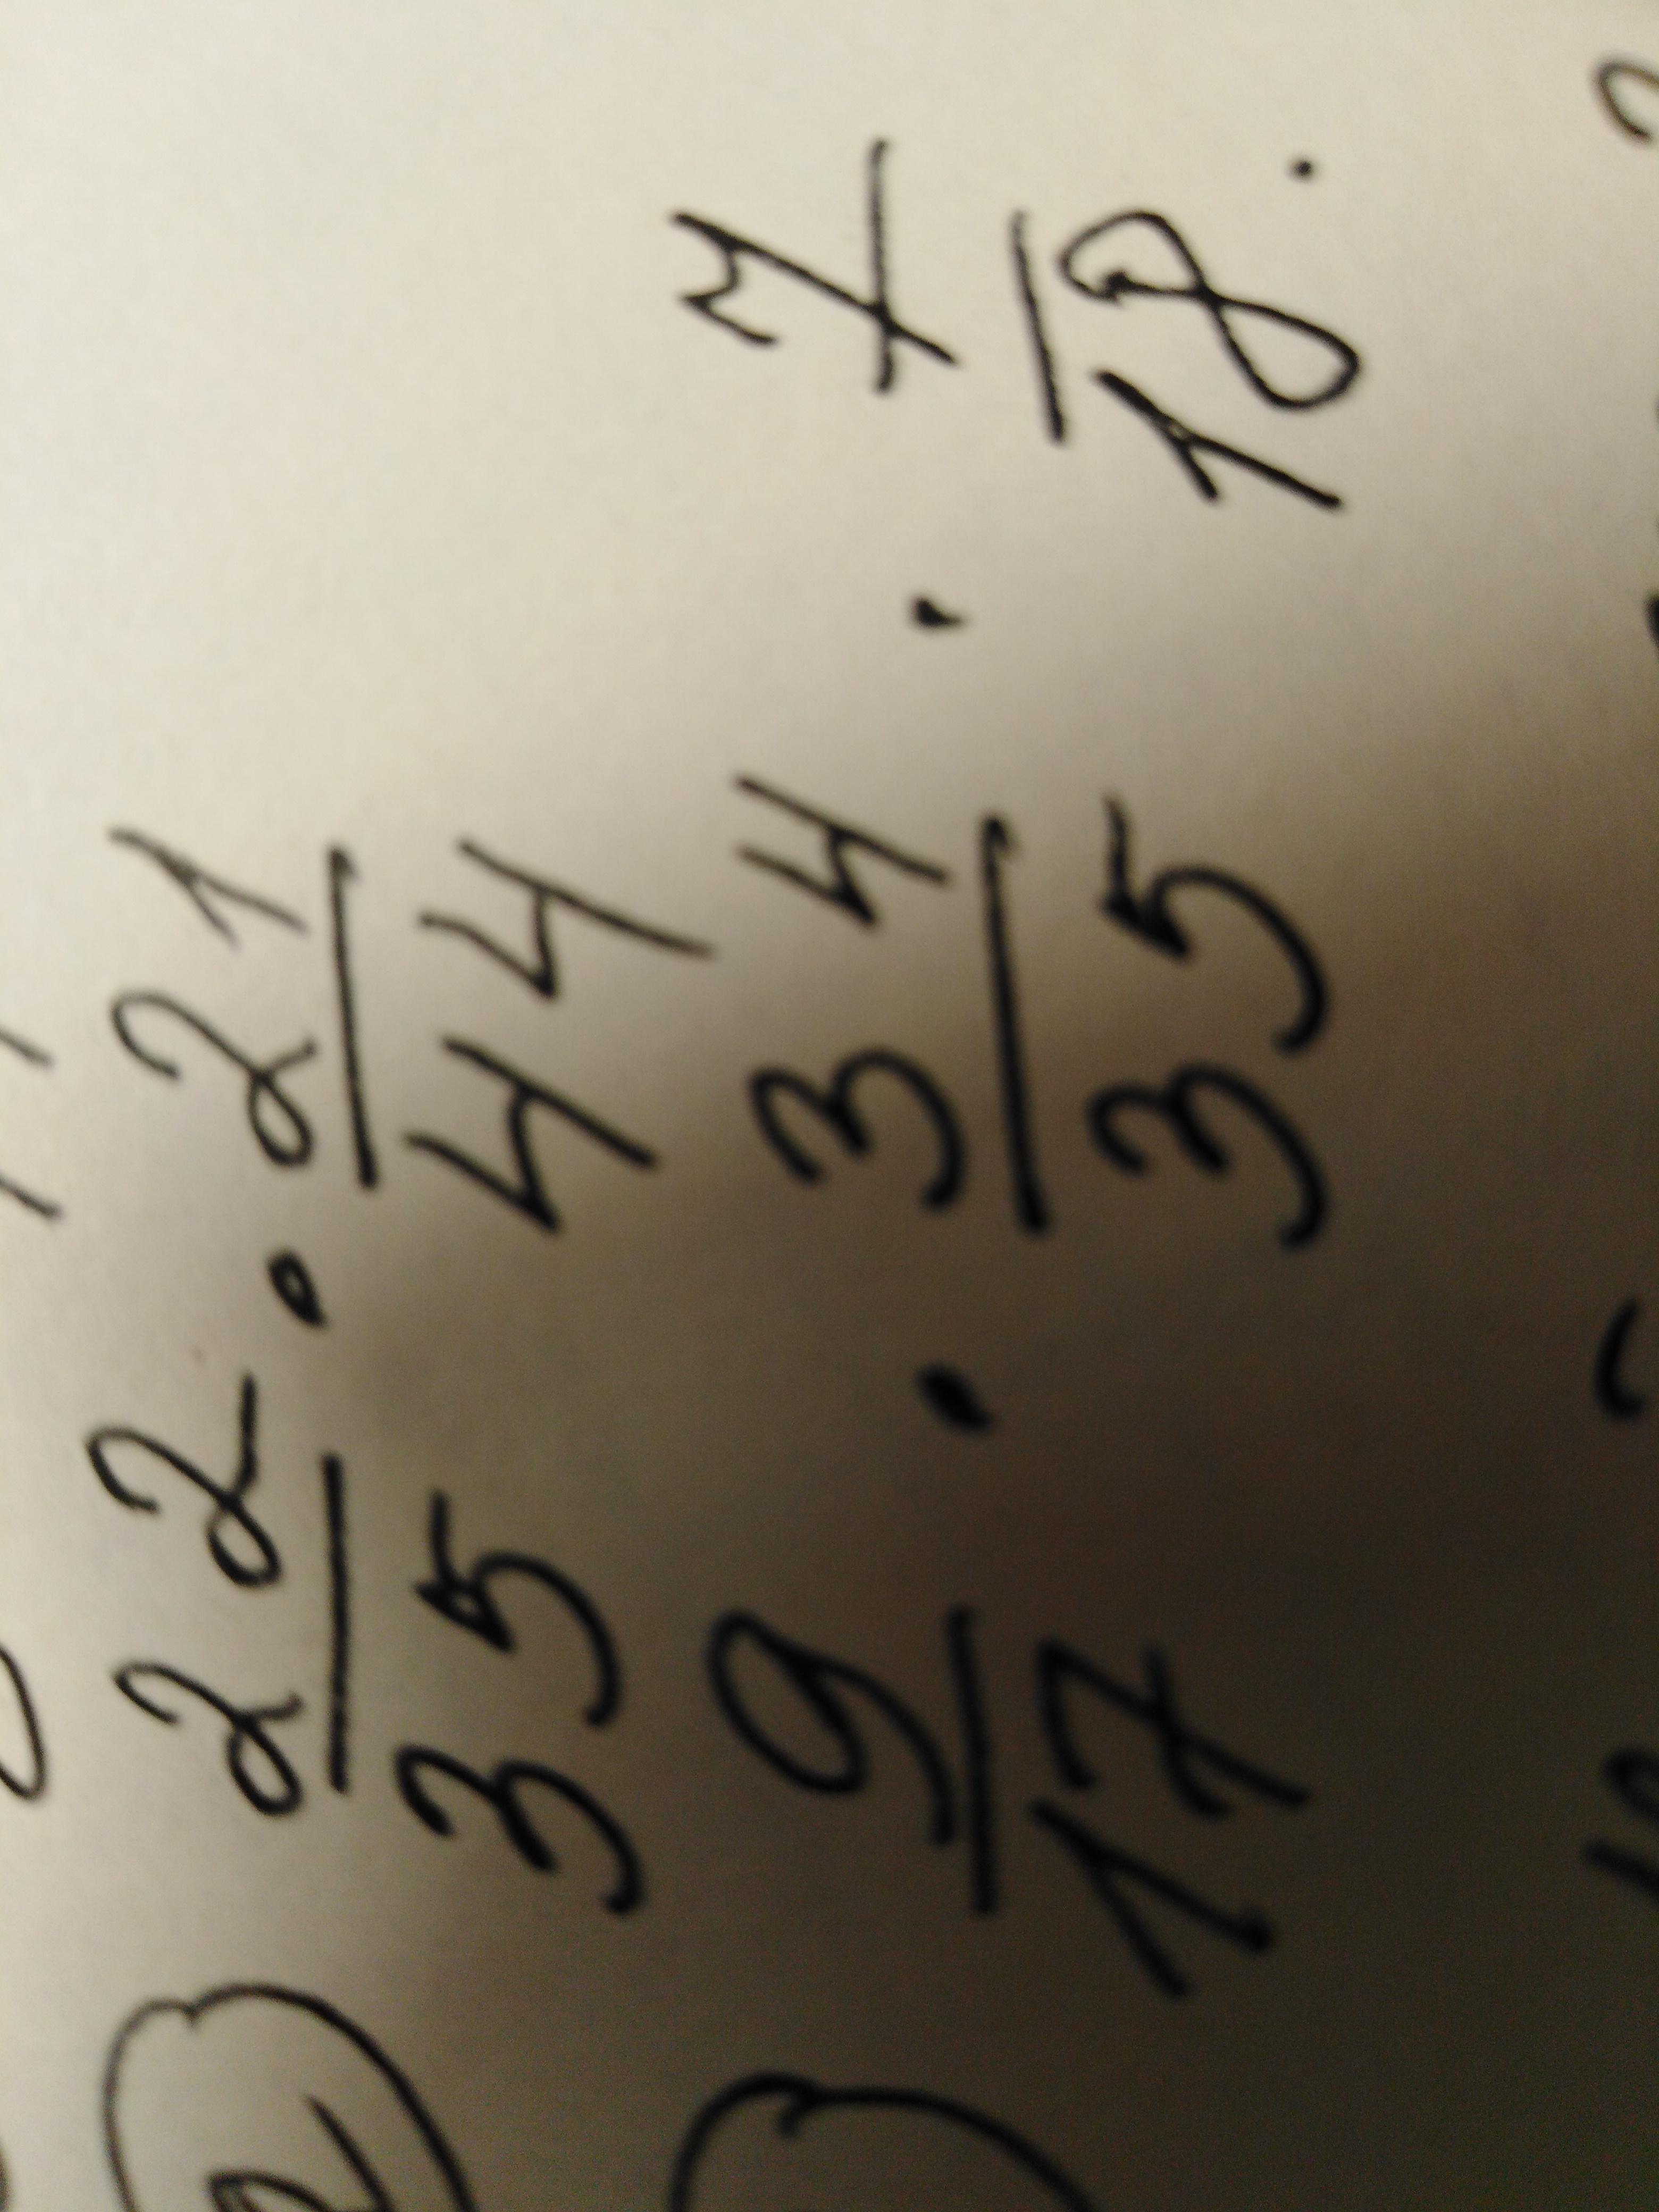 22/35 · 21/44
9/17 · 34/35 · 7/18 .